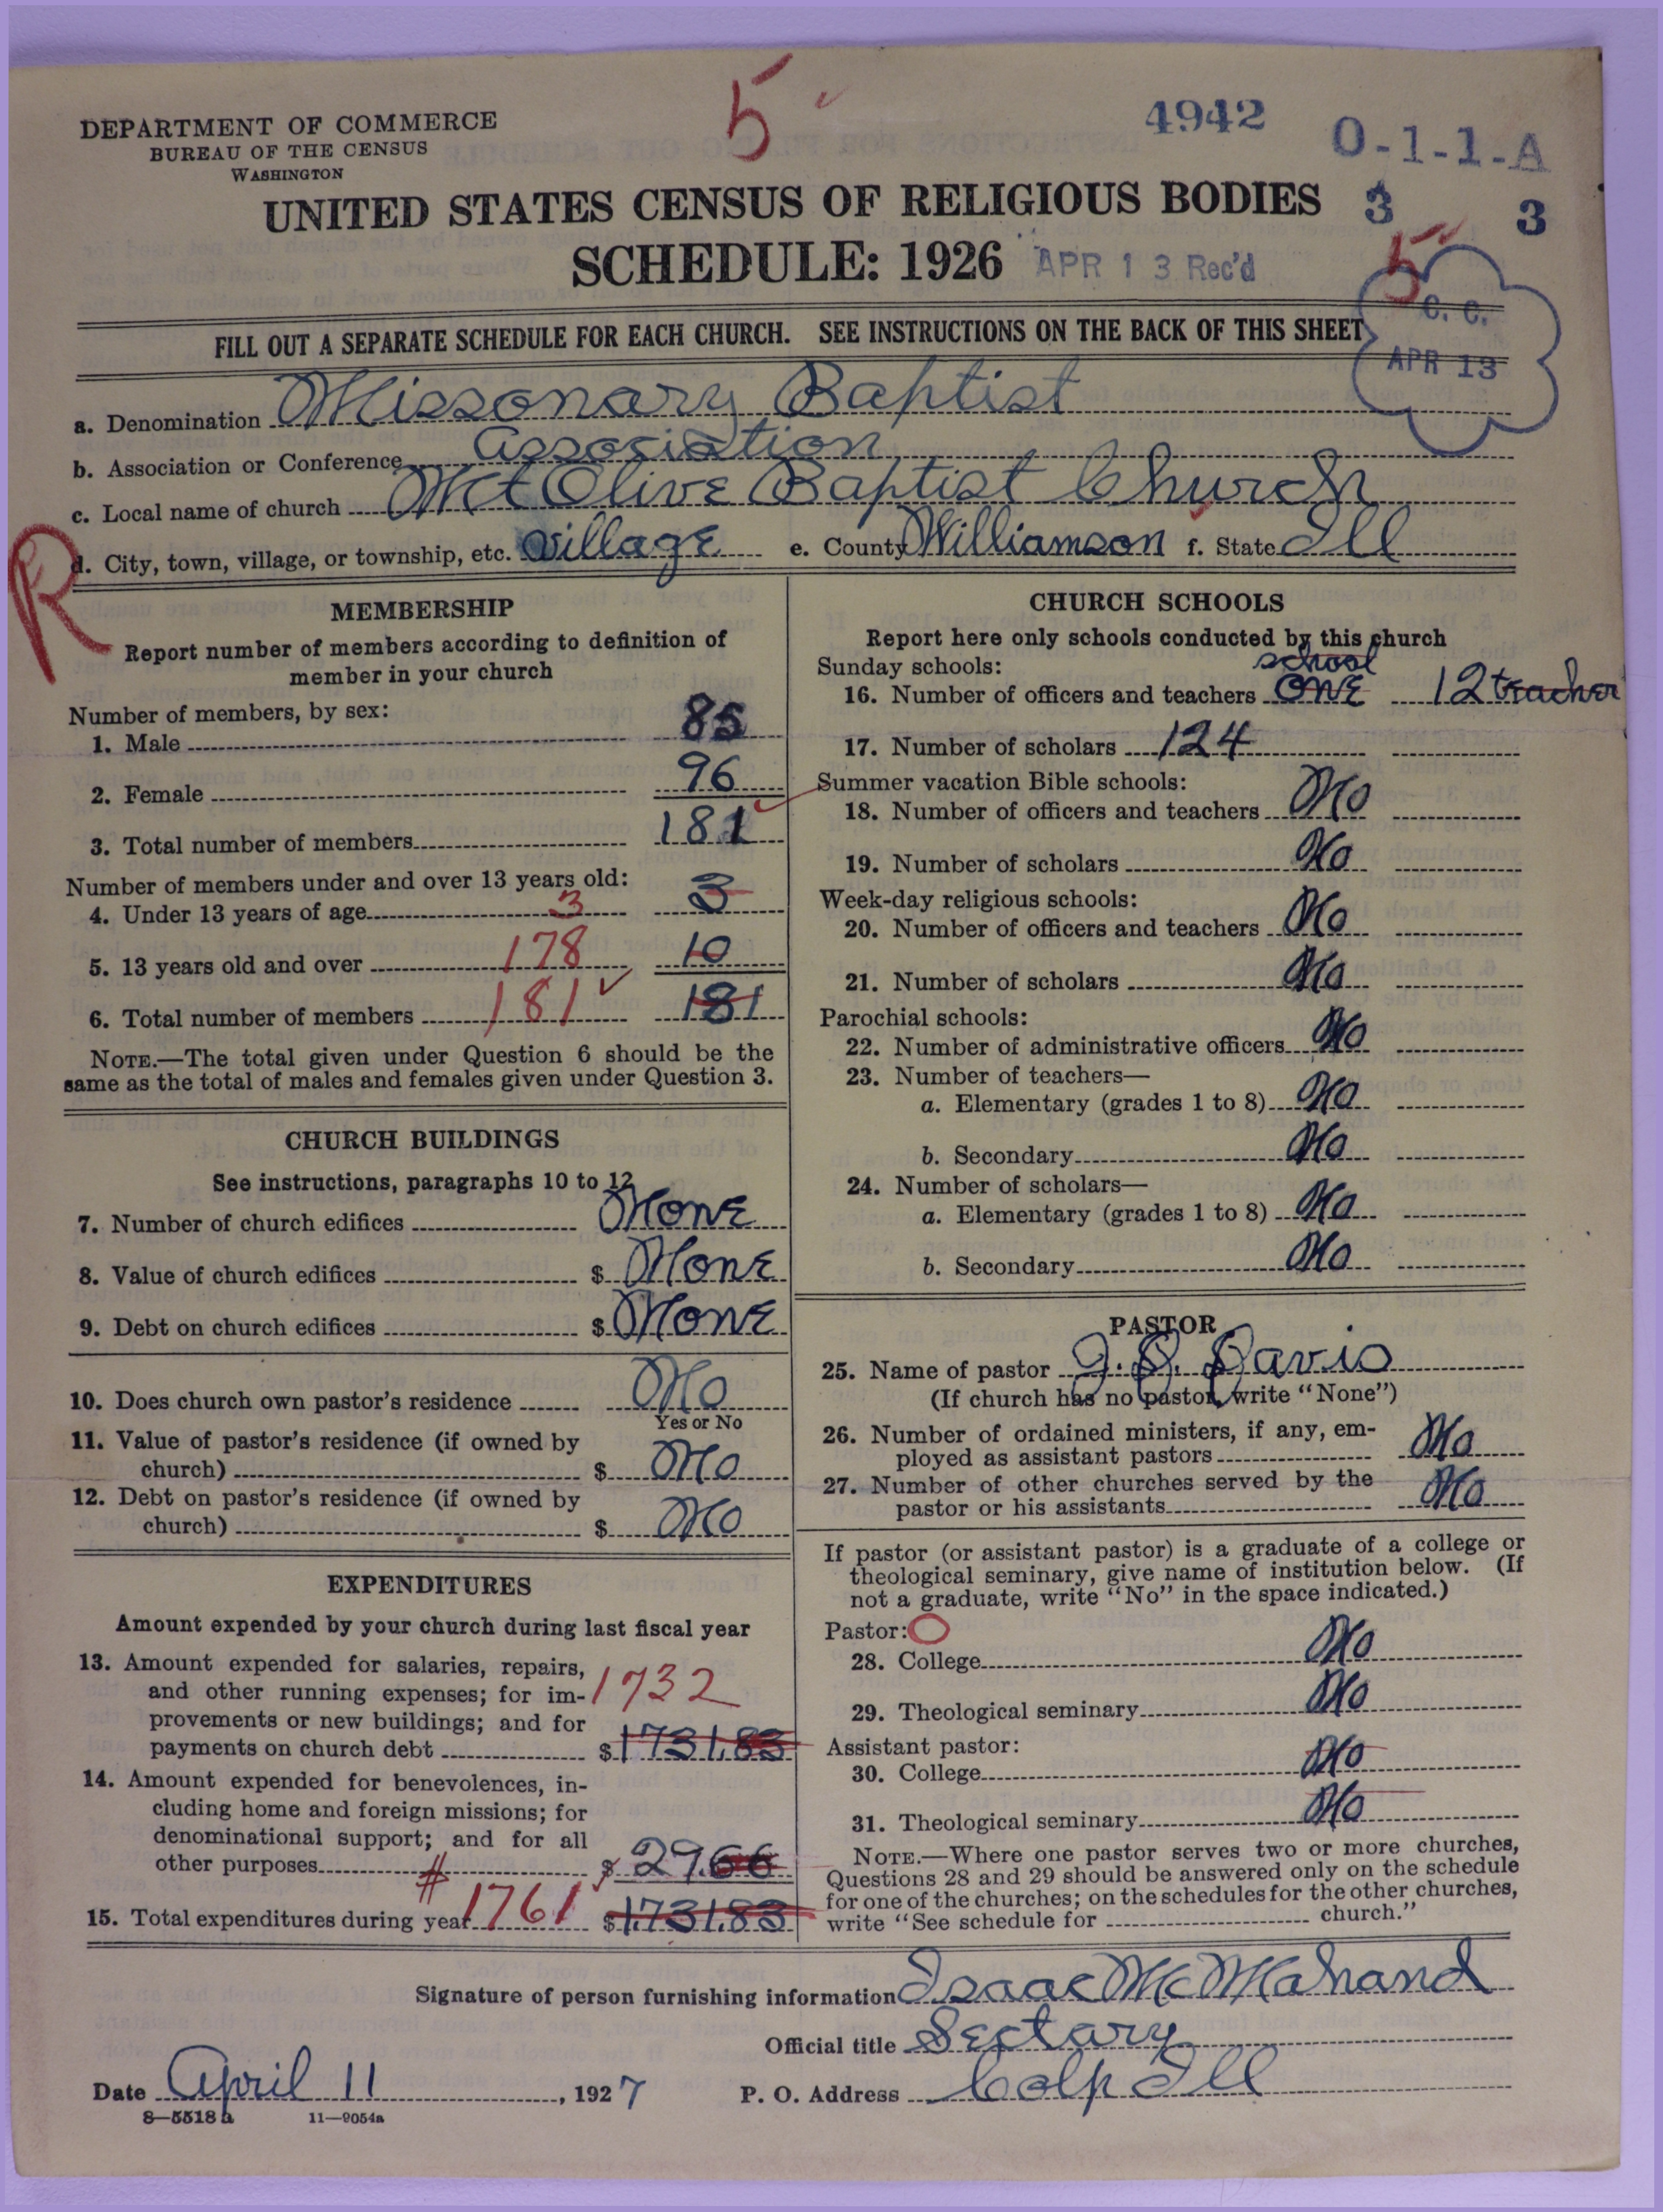 5
4942
DEPARTMENT OF COMMERCE
BUREAU OF THE CENSUS
WASHINGTON
O-1-1-A
UNITED STATES CENSUS OF RELIGIOUS BODIES
3 3
SCHEDULE: 1926
APR 13 Rec'd
5
C. C.
APR 13
FILL OUT A SEPARATE SCHEDULE FOR EACH CHURCH. SEE INSTRUCTIONS ON THE BACK OF THIS SHEET
a. Denomination Missonary Baptist
b. Association or Conference Association
c. Local name of church Mt Olive Baptist Church
R
d. City, town, village, or township, etc. village e. County Williamson f. State Ill
MEMBERSHIP
Report number of members according to definition of
member in your church
Number of members, by sex:
1. Male 85
2. Female 96
3. Total number of members 181
Number of members under and over 13 years old:
4. Under 13 years of age 3 3
5. 13 years old and over 178 10
6. Total number of members 181 181
NOTE.—The total given under Question 6 should be the
same as the total of males and females given under Question 3.
CHURCH BUILDINGS
See instructions, paragraphs 10 to 12
7. Number of church edifices None
8. Value of church edifices $ None
9. Debt on church edifices $ None
10. Does church own pastor's residence No
Yes or No
11. Value of pastor's residence (if owned by
church) $ No
12. Debt on pastor's residence (if owned by
church) $ No
EXPENDITURES
Amount expended by your church during last fiscal year
13. Amount expended for salaries, repairs,
and other running expenses; for im- 1732
provements or new buildings; and for
payments on church debt $ 1731.83
14. Amount expended for benevolences, in-
cluding home and foreign missions; for
denominational support; and for all
other purposes $ 29.66
15. Total expenditures during year # 1761 $ 1731.83
CHURCH SCHOOLS
Report here only schools conducted by this church
Sunday schools: school
16. Number of officers and teachers ONE 12 teacher
17. Number of scholars 124
Summer vacation Bible schools:
18. Number of officers and teachers No
19. Number of scholars No
Week-day religious schools:
20. Number of officers and teachers No
21. Number of scholars No
Parochial schools:
22. Number of administrative officers No
23. Number of teachers—
a. Elementary (grades 1 to 8) No
b. Secondary No
24. Number of scholars—
a. Elementary (grades 1 to 8) No
b. Secondary No
PASTOR
25. Name of pastor J. S. Davis
(If church has no pastor, write "None")
26. Number of ordained ministers, if any, em-
ployed as assistant pastors No
27. Number of other churches served by the
pastor or his assistants No
If pastor (or assistant pastor) is a graduate of a college or
theological seminary, give name of institution below. (If
not a graduate, write "No" in the space indicated.)
Pastor: O
28. College No
29. Theological seminary No
Assistant pastor:
30. College No
31. Theological seminary No
NOTE.—Where one pastor serves two or more churches,
Questions 28 and 29 should be answered only on the schedule
for one of the churches; on the schedules for the other churches,
write "See schedule for church."
Signature of person furnishing information Isaac McMahand
Official title Sectary
Date April 11, 1927 P. O. Address Colp Ill
8—5518 a 11—9054a